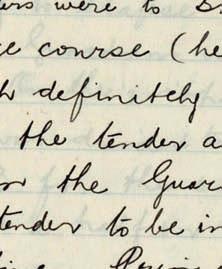 were to
course (he
definitely
the tender a
the Guar
tender to be in